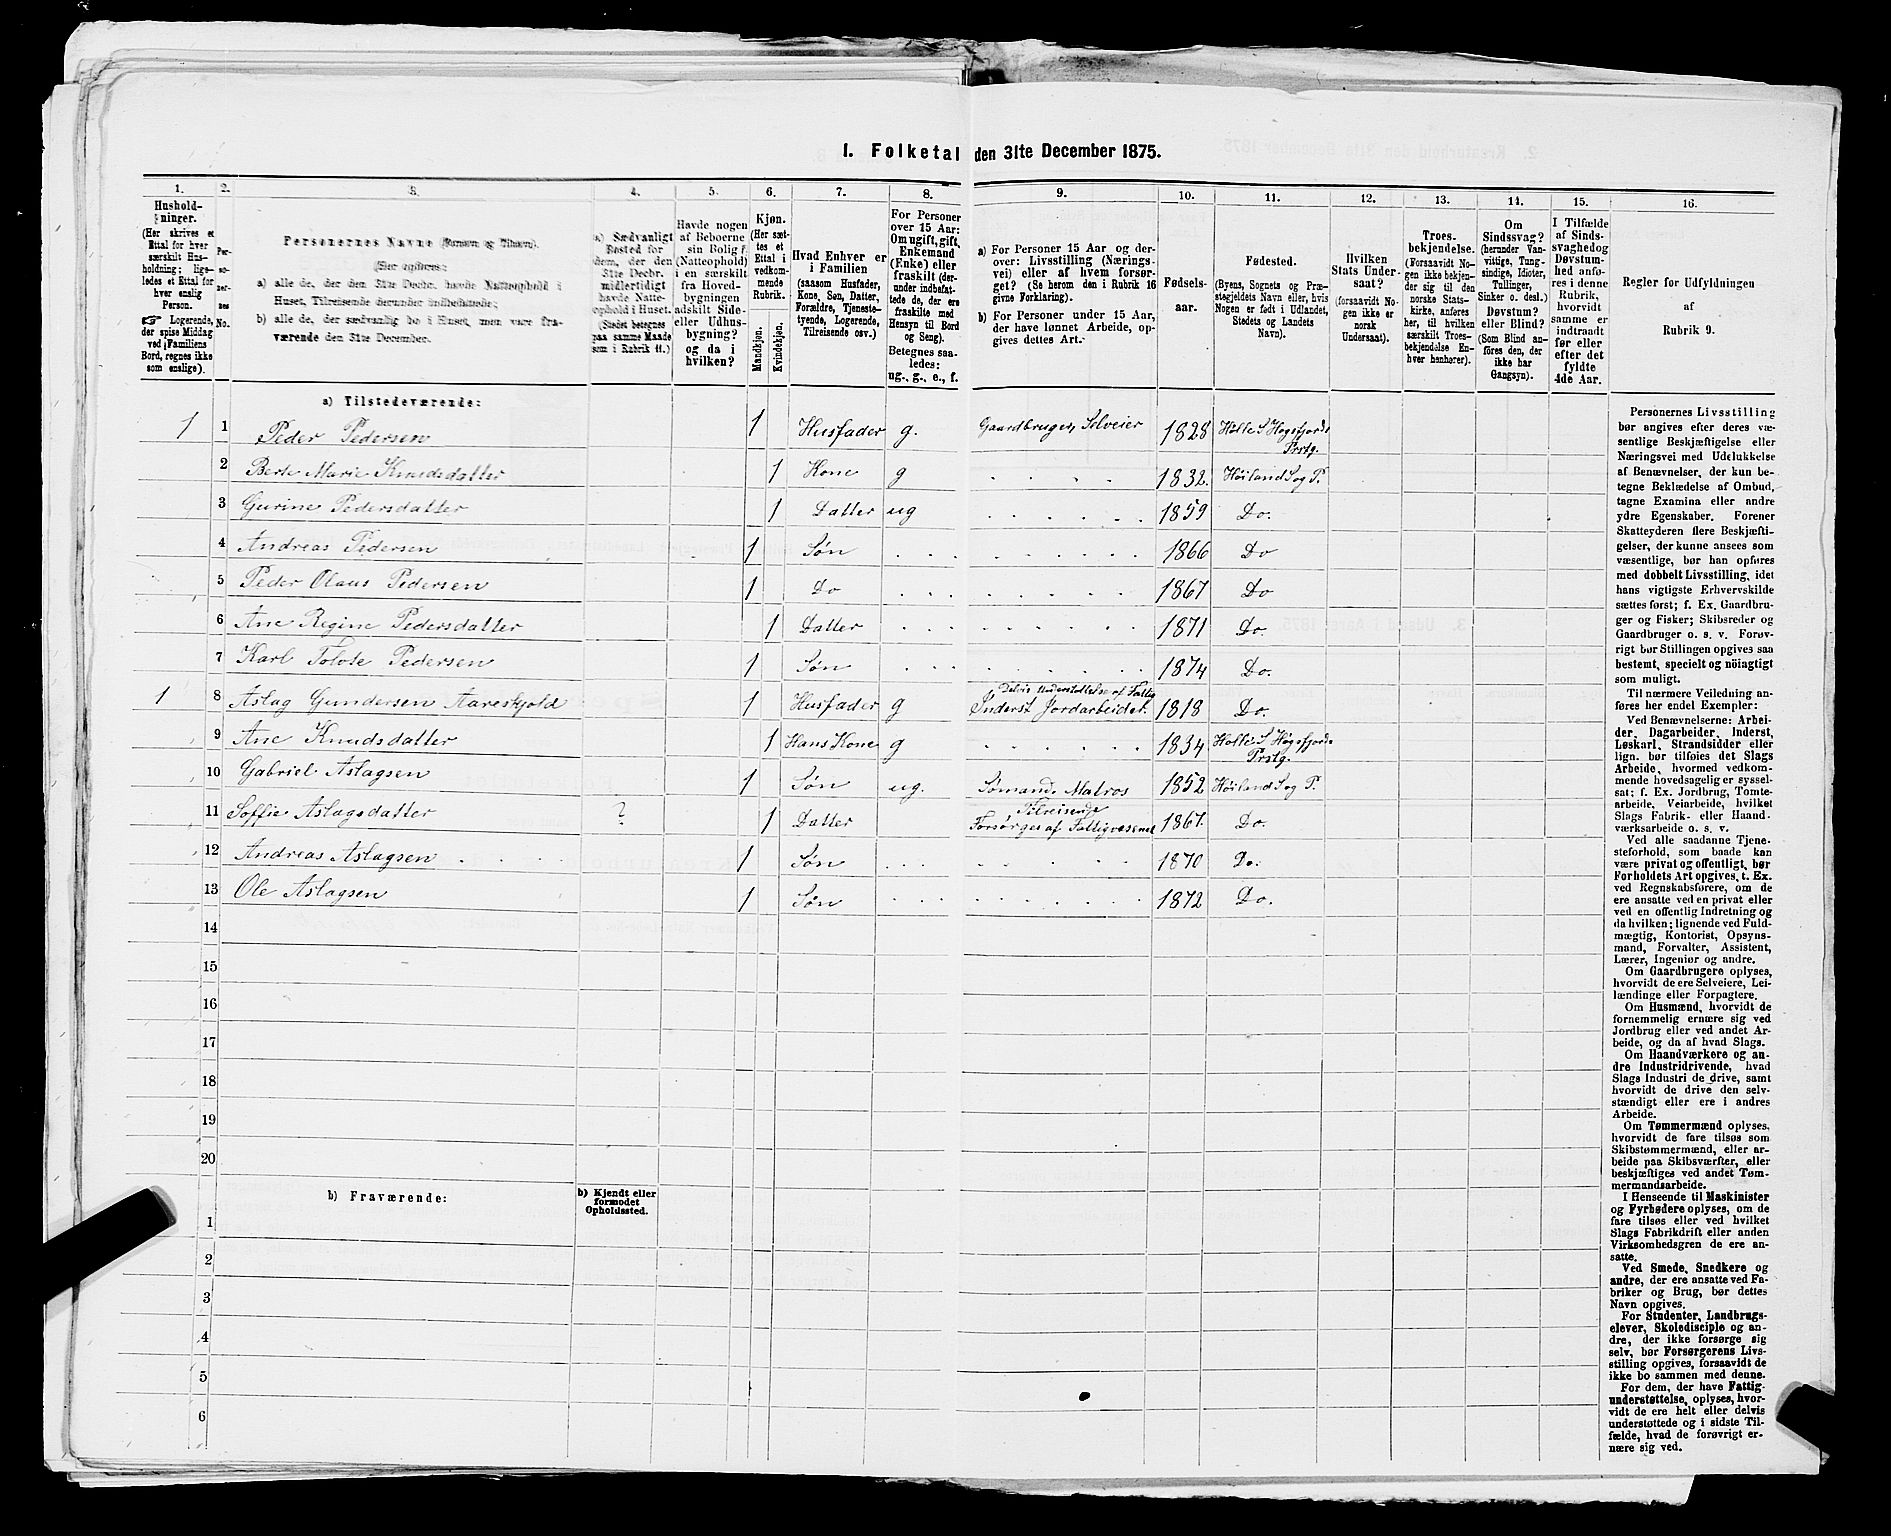 I. Folketal den 31te December 1875.
1. 2. 3. 4. 5. 6. 7. 8. 9. 10. 11. 12. 13. 14. 15. 16.
Hushold-
ninger.
(Her skrives et
Ettal for hver
særskilt Hus-
holdning; lige-
ledes et Ettal for
hver enslig
Person.
☞ Logerende,
der spise Middag
ved Familiens
Bord, regnes ikke
som enslige).
Per-
so-
ner-
nes
No.
Personernes Navne (Fornavn og Tilnavn).
(Her opføres:
a) alle de, der den 31te Decbr. havde Natteophold i
Huset, Tilreisende derunder indbefattede;
b) alle de, der sædvanlig bo i Huset, men vare fra-
værende den 31te December.
a) Sædvanligt
Bosted for
dem, der den
31te Decbr.
midlertidigt
havde Natte-
ophold i Huset.
(Stedet betegnes
paa samme Maade
som i Rubrik 11.)
Havde nogen
af Beboerne
sin Bolig
(Natteophold)
i en særskilt
fra Hoved-
bygningen
adskilt Side-
eller Udhus-
bygning?
og da i
hvilken?
Kjøn.
(Her sæt-
tes et
Ettal i
vedkom-
mende
Rubrik.
Mandkjøn.
Kvindekjøn.
Hvad Enhver er
i Familien
(saasom Husfader,
Kone, Søn, Datter,
Forældre, Tjeneste-
tyende, Logerende,
Tilreisende osv.)
For Personer
over 15 Aar:
Om ugift, gift,
Enkemand
(Enke) eller
fraskilt (der-
under indbefat-
tede de, der ere
fraskilte med
Hensyn til Bord
og Seng).
Betegnes saa-
ledes:
ug., g., e., f.
a) For Personer 15 Aar og der-
over: Livsstilling (Nærings-
vei) eller af hvem forsør-
get? (Se herom den i Rubrik 16
givne Forklaring).
b) For Personer under 15 Aar,
der have lønnet Arbeide, op-
gives dettes Art.
Fødsels-
aar.
Fødested.
(Byens, Sognets og Præ-
stegjeldets Navn eller, hvis
Nogen er født i Udlandet,
Stedets og Landets
Navn).
Hvilken
Stats Under-
saat?
(forsaavidt No-
gen ikke er
norsk
Undersaat).
Troes-
bekjendelse.
(Forsaavidt No-
gen ikke bekjen-
der sig til den
norske Stats-
kirke, anføres
her, til hvilken
særskilt Troes-
bekjendelse En-
hver henhører).
Om
Sindssvag?
(herunder Van-
vittige, Tung-
sindige, Idioter,
Tullinger,
Sinker o. desl.)
Døvstum?
eller Blind?
(Som Blind an-
føres den, der
ikke har
Gangsyn).
I Tilfælde
af Sinds-
svaghedog
Døvstum-
hed anfø-
res i denne
Rubrik,
hvorvidt
samme er
indtraadt
før eller
efter det
fyldte
4de Aar.
Regler for Udfyldningen
af
Rubrik 9.
a) Tilstedeværende:
1 1 Peder Pedersen 1 Husfader g. Gaardbruger, Selveier 1828 Holle S Høgsfjords
Prstg.
2 Berte Marie Knudsdatter 1 Kone g 1832. Høiland S og P.
3 Gurine Pedersdatter 1 Datter ug 1859 Do.
4 Andreas Pedersen 1 Søn 1866 Do
5 Peder Olaus Pedersen 1 Do 1867 Do
6 Ane Regine Pedersdatter 1 Datter 1871 Do.
7 Karl Tolvte Pedersen 1 Søn 1874 Do.
1 8 Aslag Gundersen Aareskjold 1 Husfader g Delvis Understøttelse af Fattig
Inderst Jordarbeidet. 1818 Do.
9 Ane Knudsdatter 1 Hans Kone g 1834 Holle S Høgsfjords
Prstg.
10 Gabriel Aslagsen 1 Søn ug. Sømand, Matros 1852 Høiland S og P.
11 Soffie Aslagsdatter ? 1 Datter Tilreisende
Forsørges af Fattigvæsenet 1867. Do.
12 Andreas Aslagsen 1 Søn 1870 Do.
13 Ole Aslagsen 1 Søn 1872 Do.
14
15
16
17
18
19
20
b) Fraværende:
b) Kjendt eller
formodet
Opholdssted.
1
2
3
4
5
6
Personernes Livsstilling
bør angives efter deres væ-
sentlige Beskjæftigelse eller
Næringsvei med Udelukkelse
af Benævnelser, der kun be-
tegne Beklædelse af Ombud,
tagne Examina eller andre
ydre Egenskaber. Forener
Skatteyderen flere Beskjæfti-
gelser, der kunne ansees som
væsentlige, bør han opføres
med dobbelt Livsstilling, idet
hans vigtigste Erhvervskilde
sættes først; f. Ex. Gaardbru-
ger og Fisker; Skibsreder og
Gaardbruger o. s. v. Forøv-
rigt bør Stillingen opgives saa
bestemt, specielt og nöiagtigt
som muligt.
Til nærmere Veiledning an-
føres her endel Exempler:
Ved Benævnelserne: Arbei-
der, Dagarbeider, Inderst,
Løskarl, Strandsidder eller
lign. bør tilføies det Slags
Arbeide, hvormed vedkom-
mende hovedsagelig er syssel-
sat; f. Ex. Jordbrug, Tomte-
arbeide, Veiarbeide, hvilket
Slags Fabrik- eller Haand-
værksarbeide o. s. v.
Ved alle saadanne Tjene-
steforhold, som baade kan
være privat og offentligt, bør
Forholdets Art opgives, t. Ex.
ved Regnskabsførere, om de
ere ansatte ved en privat eller
ved en offentlig Indretning og
da hvilken; lignende ved Fuld-
mægtig, Kontorist, Opsyns-
mand, Forvalter, Assistent,
Lærer, Ingeniør og andre.
Om Gaardbrugere oplyses,
hvorvidt de ere Selveiere, Lei-
lændinge eller Forpagtere.
Om Husmænd, hvorvidt de
fornemmelig ernære sig ved
Jordbrug eller ved andet Ar-
beide, og da af hvad Slags.
Om Haandværkere og an-
dre Industridrivende, hvad
Slags Industri de drive, samt
hvorvidt de drive den selv-
stændigt eller ere i andres
Arbeide.
Om Tømmermænd oplyses,
hvorvidt de fare tilsøs som
Skibstømmermænd, eller ar-
beide paa Skibsværfter, eller
beskjæftiges ved andet Tøm-
mermandsarbeide.
I Henseende til Maskinister
og Fyrbødere oplyses, om de
fare tilsøs eller ved hvilket
Slags Fabrikdrift eller anden
Virksomhedsgren de ere an-
satte.
Ved Smede, Snedkere og
andre, der ere ansatte ved Fa-
briker og Brug, bør dettes
Navn opgives.
For Studenter, Landbrugs-
elever, Skoledisciple og an-
dre, der ikke forsørge sig
selv, bør Forsørgerens Livs-
stilling opgives, forsaavidt de
ikke bo sammen med denne.
For dem, der have Fattig-
understøttelse, oplyses, hvor-
vidt de ere helt eller delvis
understøttede og i sidste Til-
fælde, hvad de forøvrigt er-
nære sig ved.